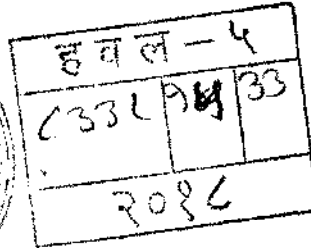 हवल - ५
८३३८ १५ 33
२०१८